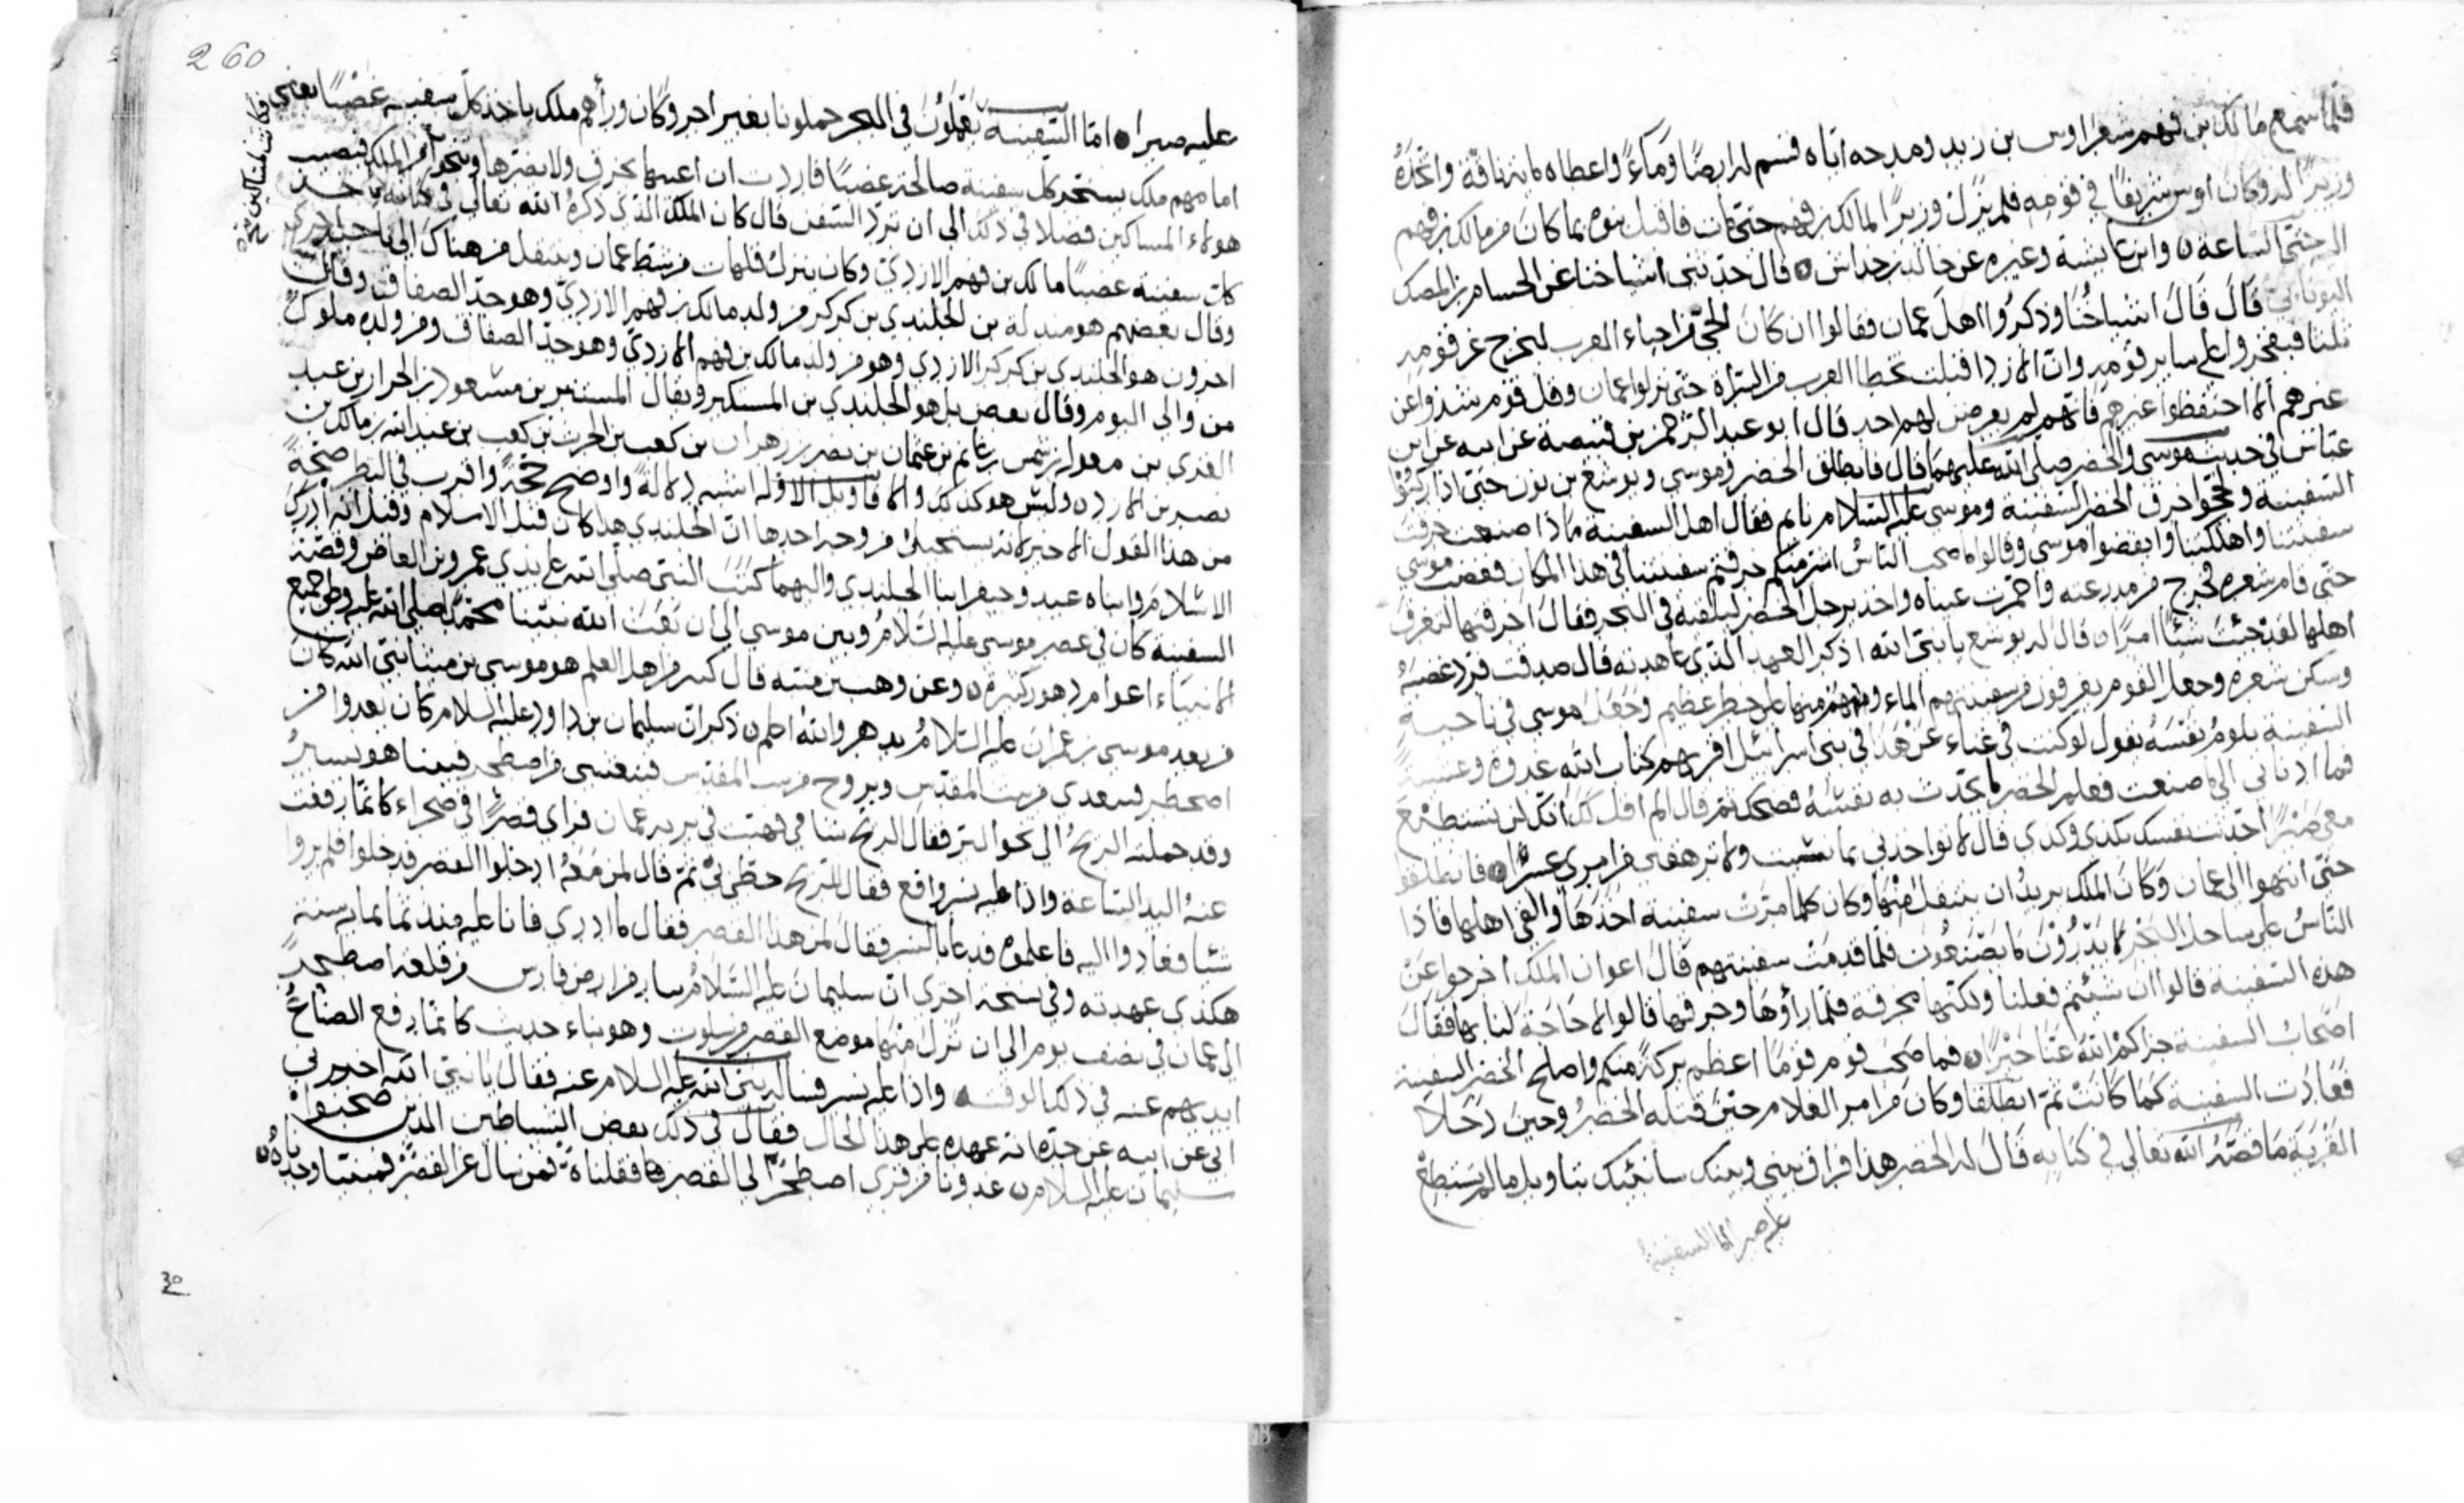 فلما سمع مالك بن فهم شعر اوس بن زيد ومدحه اياه قسم له ارضًا وماءً واعطاه مائة ناقة واتخذهُ
وزيرًا له وكان اوس شريفًا في قومه فلم يزل وزيرًا لمالك بن فهم حتى مات فاقبل بنوه بما كان من مالك بن فهم
الى حتى الساعة ن وابن عايشة وغيره عن خالد بن خداش ن قال حدثني اشياخنا عن الحسام بن المصك
قال قال اشياخنا وذكروا اهل عمان فقالوا ان كان الحي من احياء العرب ليخرج عن قومه
فيفخروا على ساير قومه وان الازد اقبلت تخطا العرب من السراة حتى نزلوا عمان وقل قوم شذوا عن
غيرهم الا احتفظوا غيرهم فانهم لم يعرض لهم احد قال ابو عبد الرحمن بن قبيصة عن ابيه عن ابن
عباس في حديث موسى والخضر صلى الله عليهما قال فانطلق الخضر وموسى ويوشع بن نون حتى اذا ركبوا
السفينة ولججوا خرق الخضر السفينة وموسى عليه السلام نايم فقال اهل السفينة ماذا صنعت خرقت
سفينتنا واهلكتنا وايقضوا موسى وقالوا ما صحب الناس اشر منكم خرقتم سفينتنا في هذا المكان فغضب موسى
حتى قام شعره فخرج من مدرعته واحمرت عيناه واخذ برجل الخضر ليلقيه في البحر فقال اخرقتها لتغرق
اهلها لقد جئت شيئًا امرًا ن قال له يوشع يا نبي الله اذكر العهد الذي عاهدته قال صدقت فرد غضبهُ
وسكن شعره وجعل القوم يغرفون من سفينتهم الماء وهم منها على خطر عظيم وجعل موسى في ناحية
السفينة يلوم نفسه يقول لو كنت في غناء عن هذا في بني اسرائيل اقرئهم كتاب الله غدوة وعشية
فما ادناني الى ما صنعت فعلم الخضر ما يحدث به نفسه فضحك ثم قال الم اقل لك انك لن تستطيع
معي صبرًا احدثت نفسك بكذى وكذى قال لا تواخذني بما نسيت ولا ترهقني من امري عسرًا ن فانطلقوا
حتى انتهوا الى عمان وكان الملك يريد ان ينتقل منها وكان كلما مرت سفينة اخذها والقى اهلها فاذا
الناس على ساحل البحر لا يدرون ما يصنعون فلما قدمت سفينتهم قال اعوان الملك اخرجوا عن
هذه السفينة قالوا ان شئتم فعلنا ولكنها مخرقة فلما رأوها وخرقها قالوا لا حاجة لنا بها فقال
اصحاب السفينة جزاكم الله عنا خيرًا ن فما صحب قوم قومًا اعظم بركة منكم واصلح الخضر السفينة
فعادت السفينة كما كانت ثم انطلقا وكان من امر الغلام حين قتله الخضر وحين دخلا
القرية ما قصه الله تعالى في كتابه قال له الخضر هذا فراق بيني وبينك سانبئك بتاويل ما لم تستطع
عليه صبرا اما السفينة
260
عليه صبرا ن اما السفينة يعملون في البحر حملونا بغير اجر وكان ورأهم ملك ياخذ كل سفينة غصبًا يعني
فكانت لمساكين
امامهم ملك يستخر كل سفينة صالحة غصبًا فاردت ان اعيبها بخرق ولا يضرها وينجوا من الملك فنصيب
هولاء المساكين فضلا في ذلك الى ان ترد السفن قال كان الملك الذي ذكره الله تعالى في كتابه ياخذ
كل سفينة غصبًا مالك بن فهم الازدي وكان ينزل قلهات من شط عمان وينتقل من هناك الى ناحية اخرى
وقال بعضهم هو مندلة بن الجلندي بن كركر من ولد مالك بن فهم الازدي وهو جد الصفاق وقال
اخرون هو الجلندي بن كركر الازدي وهو من ولد مالك بن فهم الازدي وهو جد الصفاق ومن ولده ملوك
من والى اليوم وقال بعض بل هو الجلندي بن المستكبر ويقال المستنير بن مسعود بن الحرار بن عبد
العزى بن معولة بن شمس بن غانم بن عثمان بن نصر بن زهران بن كعب بن الحرث بن كعب بن عبد الله بن مالك بن
نصر بن الازد ن وليس هو كذلك والا فاويل الاوله اشبه دلالة واوضح حجة واقرب في النظر صحة
من هذا القول الاخير لانه يستحيل من وجه احدها ان الجلندي هذا كان قبل الاسلام وقيل انه ادرك
الاسلام وابناه عبد وجيفر ابنا الجلندي واليهما كتب النبي صلى الله على يدي عمرو بن العاص وقصة
السفينة كان في عصر موسى عليه السلام وبين موسى الى ان بعث الله نبينا محمدًا صلى الله عليه وعلى جميع
الانبياء اعوام دهور كثيرة ن وعن وهب بن منبه قال كثير من اهل العلم هو موسى بن ميشا نبي الله كان
من بعد موسى بن عمران عليه السلام بدهر والله اعلم ن ذكر ان سليمان بن داود عليه السلام كان يغدوا من
اصطخر فيتغدى في بيت المقدس ويروح من بيت المقدس فيتعشى في اصطخر فبينا هو يسير
وقد حملته الريح الى نحو البر فقال الريح في برية عمان فراى قصرًا في صحراء كانما رفعت
عنه اليد الساعة واذا عليه نسر واقع فقال للريح حطي ثم قال لمن معه ادخلوا القصر فدخلوا فلم يروا
شيئا فعادوا اليه فاعلموه فدعا بالنسر فقال لمن هذا القصر فقال ما ادري فانا عليه منذ ثمانماية سنة
هكذى عهدته وفي نسخة اخرى ان سليمان عليه السلام سار من ارض فارس من قلعة اصطخر
الى عمان في نصف يوم الى ان نزل منها موضع القصر من سلوت وهو بناء حديث كانما رفع الصناع
ايديهم عنه في ذلك الوقت واذا عليه نسر فساله نبي الله عليه السلام عنه فقال يا نبي الله اخبرني
ابي عن ابيه عن جده انه عهده على هذا الحال فقال في ذلك بعض الشياطين الذين صحبوا
سليمان عليه السلام ن غدونا من قرى اصطخر الى القصر فقلناه فمن سال عن القصر فمبنيا وجدناه ن